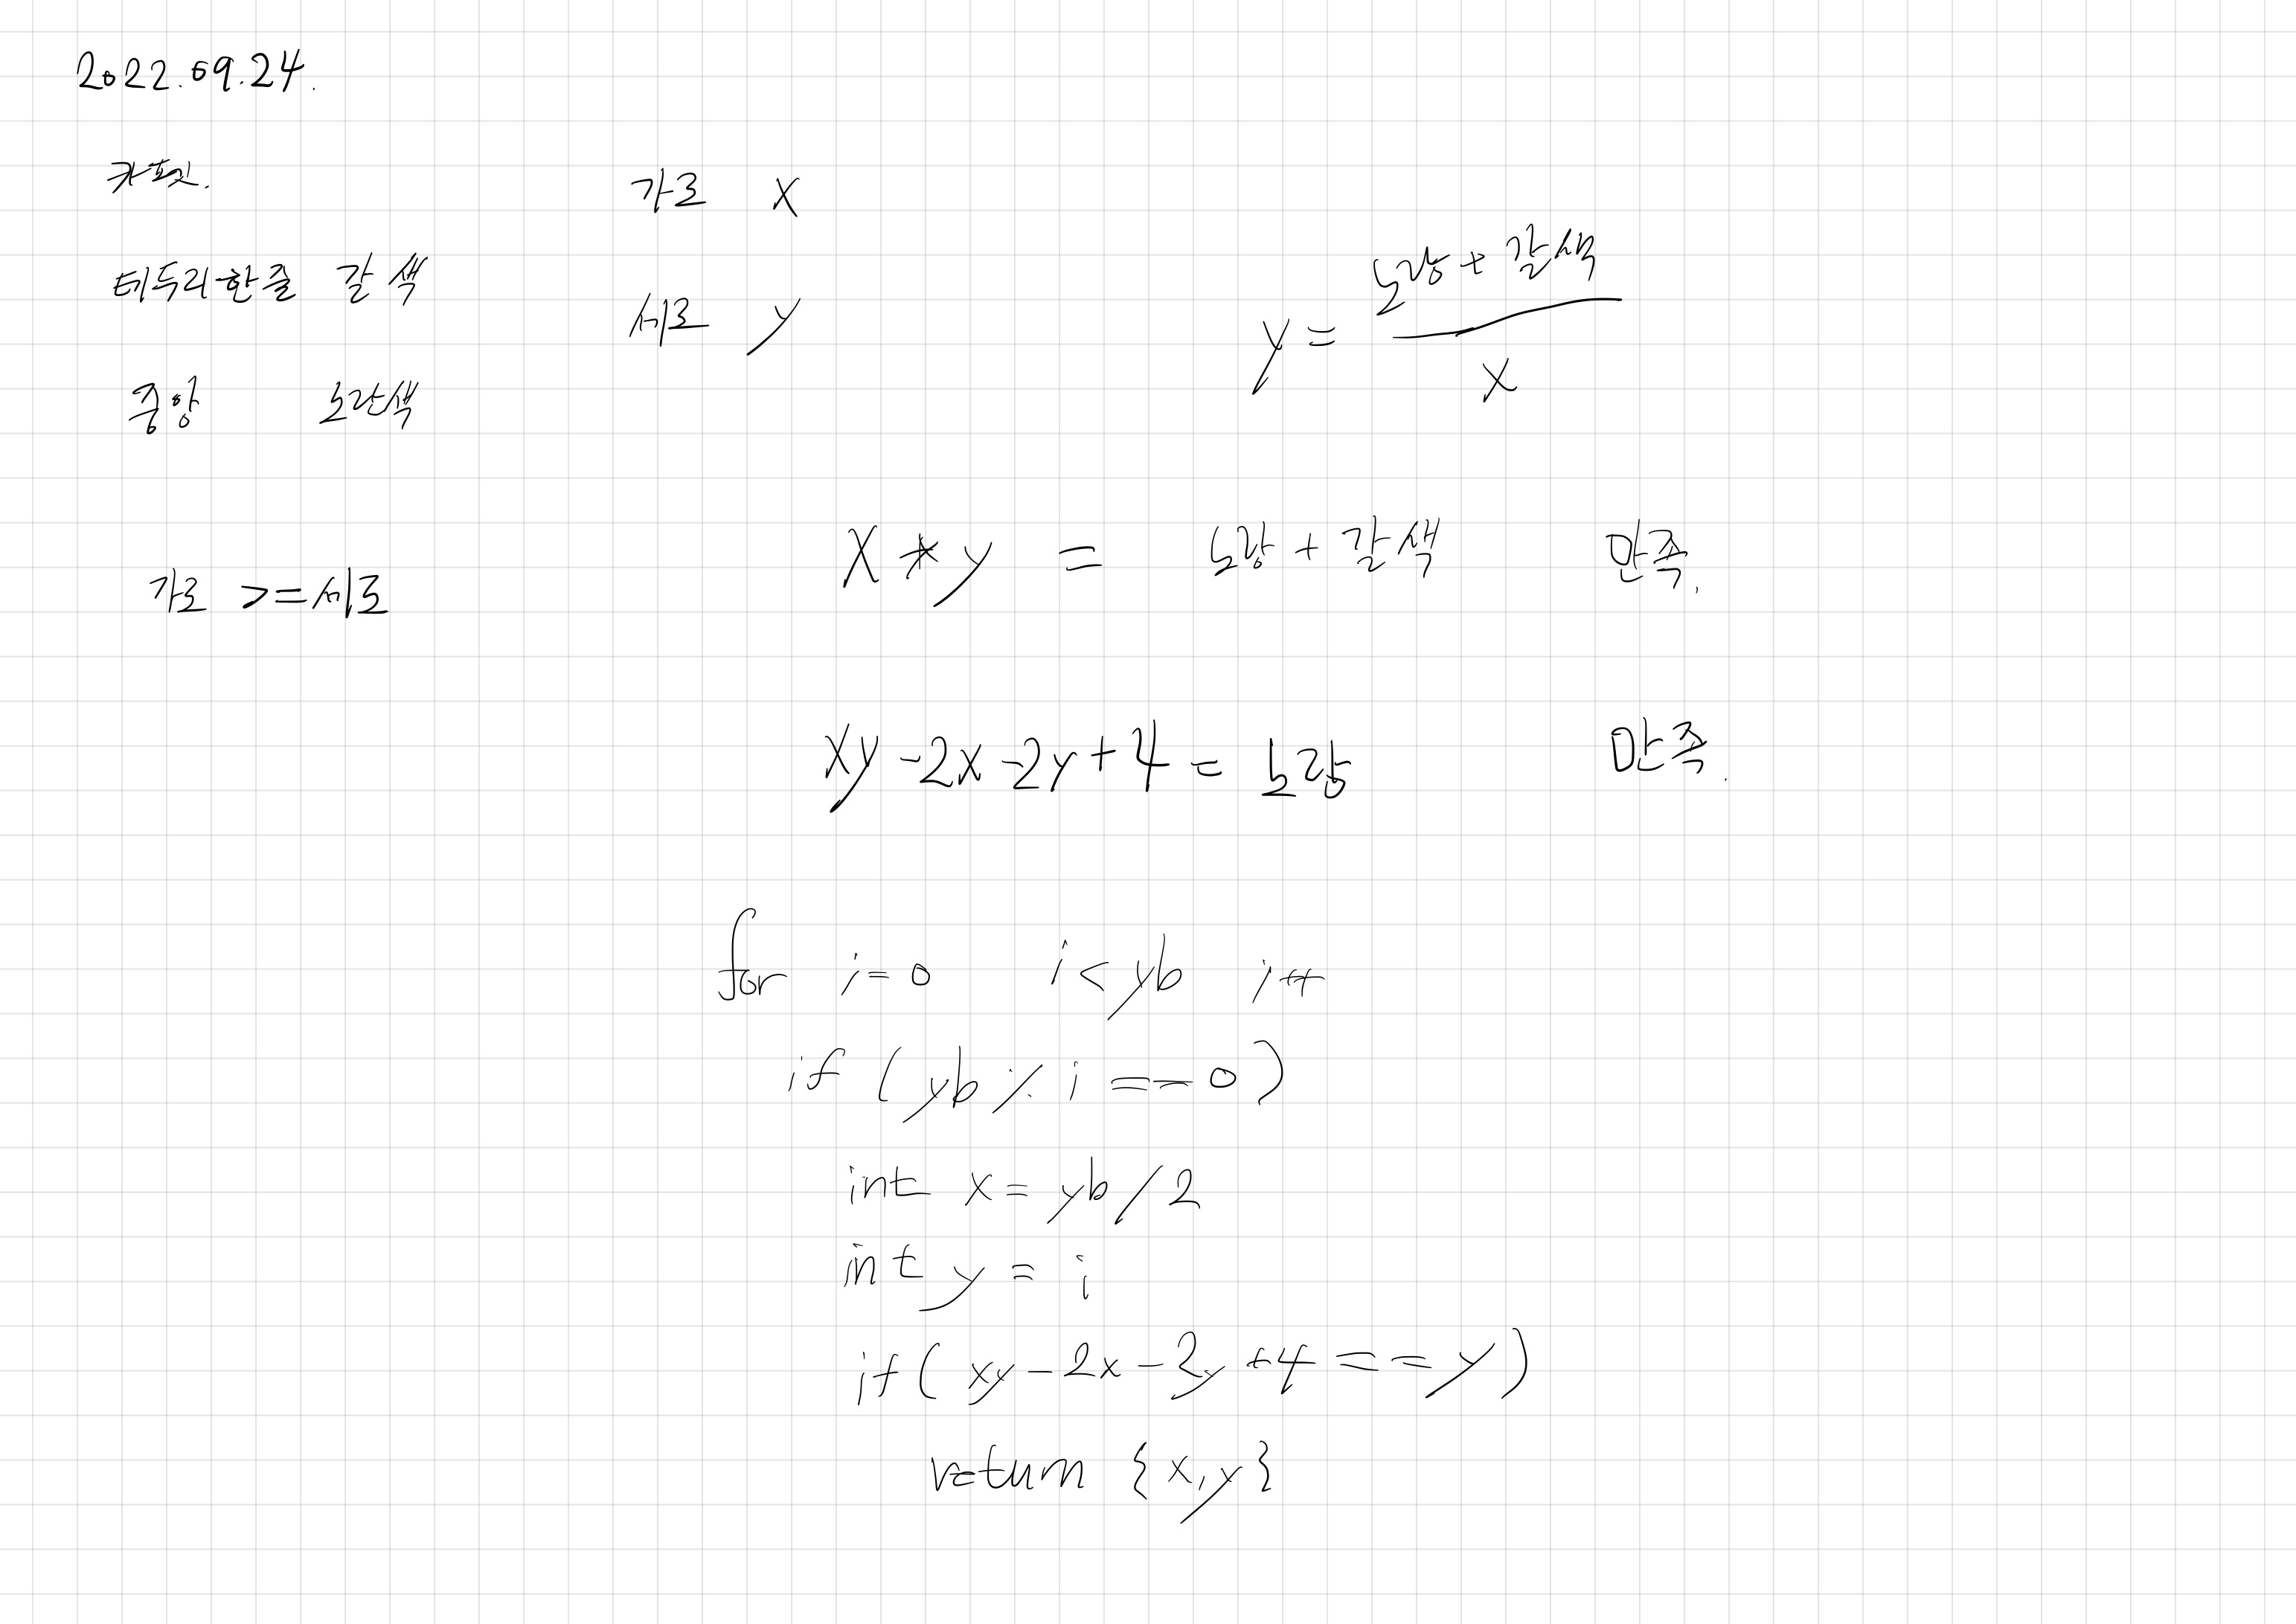 2022.09.24.
카펫.
테두리 한줄 갈색
중앙 노란색
가로 >= 세로
가로 x
세로 y
y = 노랑 + 갈색 / x
x * y = 노랑 + 갈색 만족.
xy - 2x - 2y + 4 = 노랑 만족.
for i = 0 i < yb i++
if (yb % i == 0)
int x = yb / 2
int y = i
if (xy - 2x - 2y + 4 == y)
return {x, y}